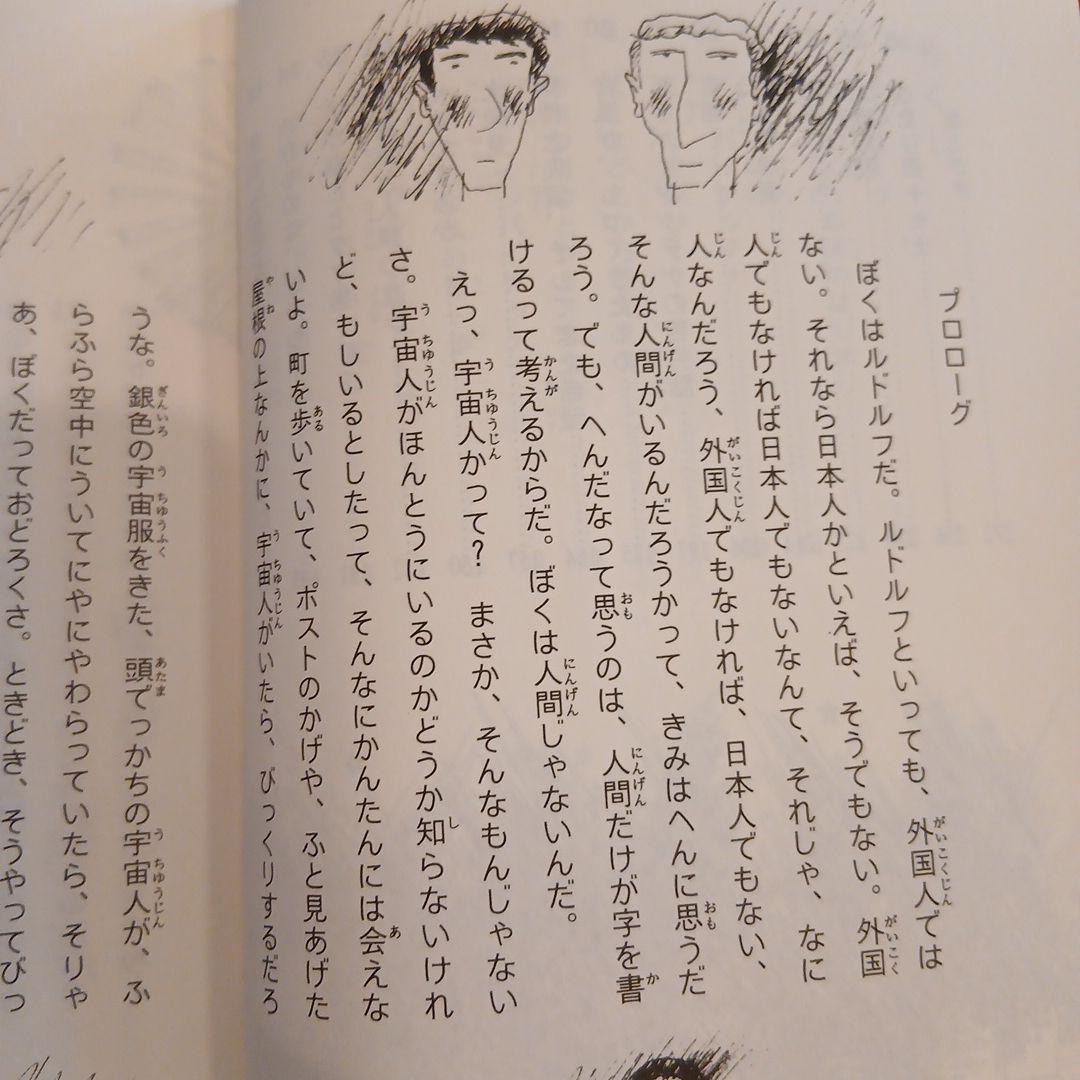 プロローグ
ぼくはルドルフだ。ルドルフといっても、外国人では
ない。それなら日本人かといえば、そうでもない。外国
人でもなければ日本人でもないなんて、それじゃ、なに
人なんだろう、外国人でもなければ、日本人でもない、
そんな人間がいるんだろうかって、きみはへんに思うだ
ろう。でも、へんだなって思うのは、人間だけが字を書
けるって考えるからだ。ぼくは人間じゃないんだ。
えっ、宇宙人かって？　まさか、そんなもんじゃない
さ。宇宙人がほんとうにいるのかどうか知らないけれ
ど、もしいるとしたって、そんなにかんたんには会えな
いよ。町を歩いていて、ポストのかげや、ふと見あげた
屋根の上なんかに、宇宙人がいたら、びっくりするだろ
うな。銀色の宇宙服をきた、頭でっかちの宇宙人が、ふ
らふら空中にういてにやにやわらっていたら、そりゃ
あ、ぼくだっておどろくさ。ときどき、そうやってびっ